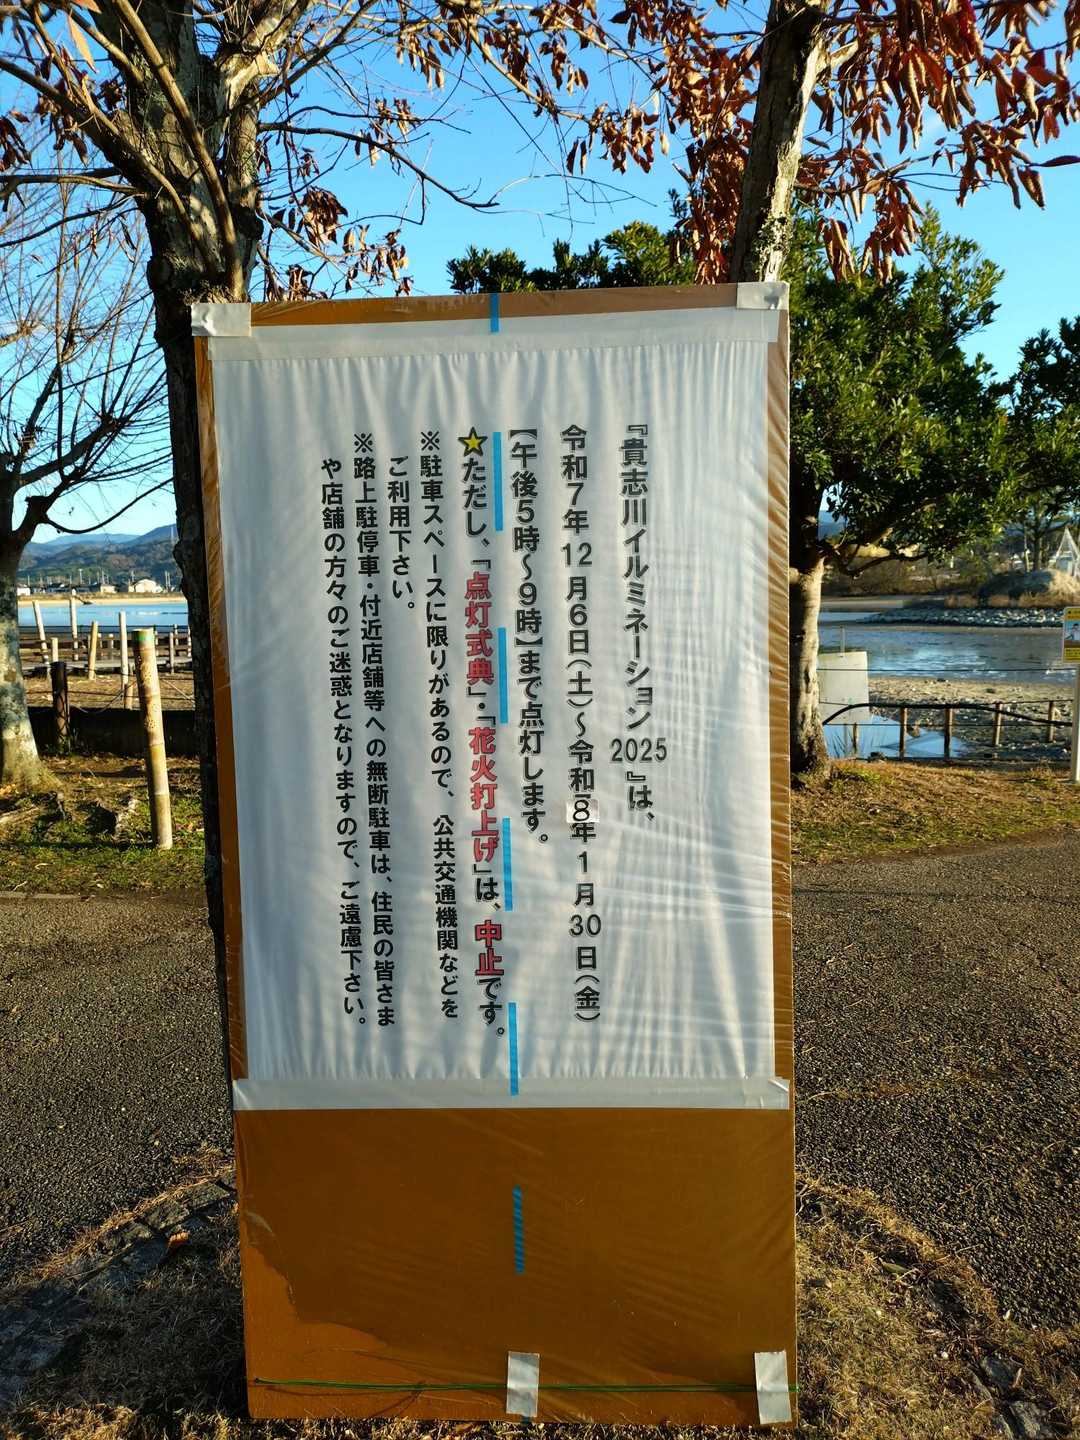 『貴志川イルミネーション2025』は、
令和7年12月6日(土)〜令和8年1月30日(金)
【午後5時〜9時】まで点灯します。
★ただし、「点灯式典」・「花火打上げ」は、中止です。
※駐車スペースに限りがあるので、公共交通機関などを
ご利用下さい。
※路上駐停車・付近店舗等への無断駐車は、住民の皆さま
や店舗の方々のご迷惑となりますので、ご遠慮下さい。